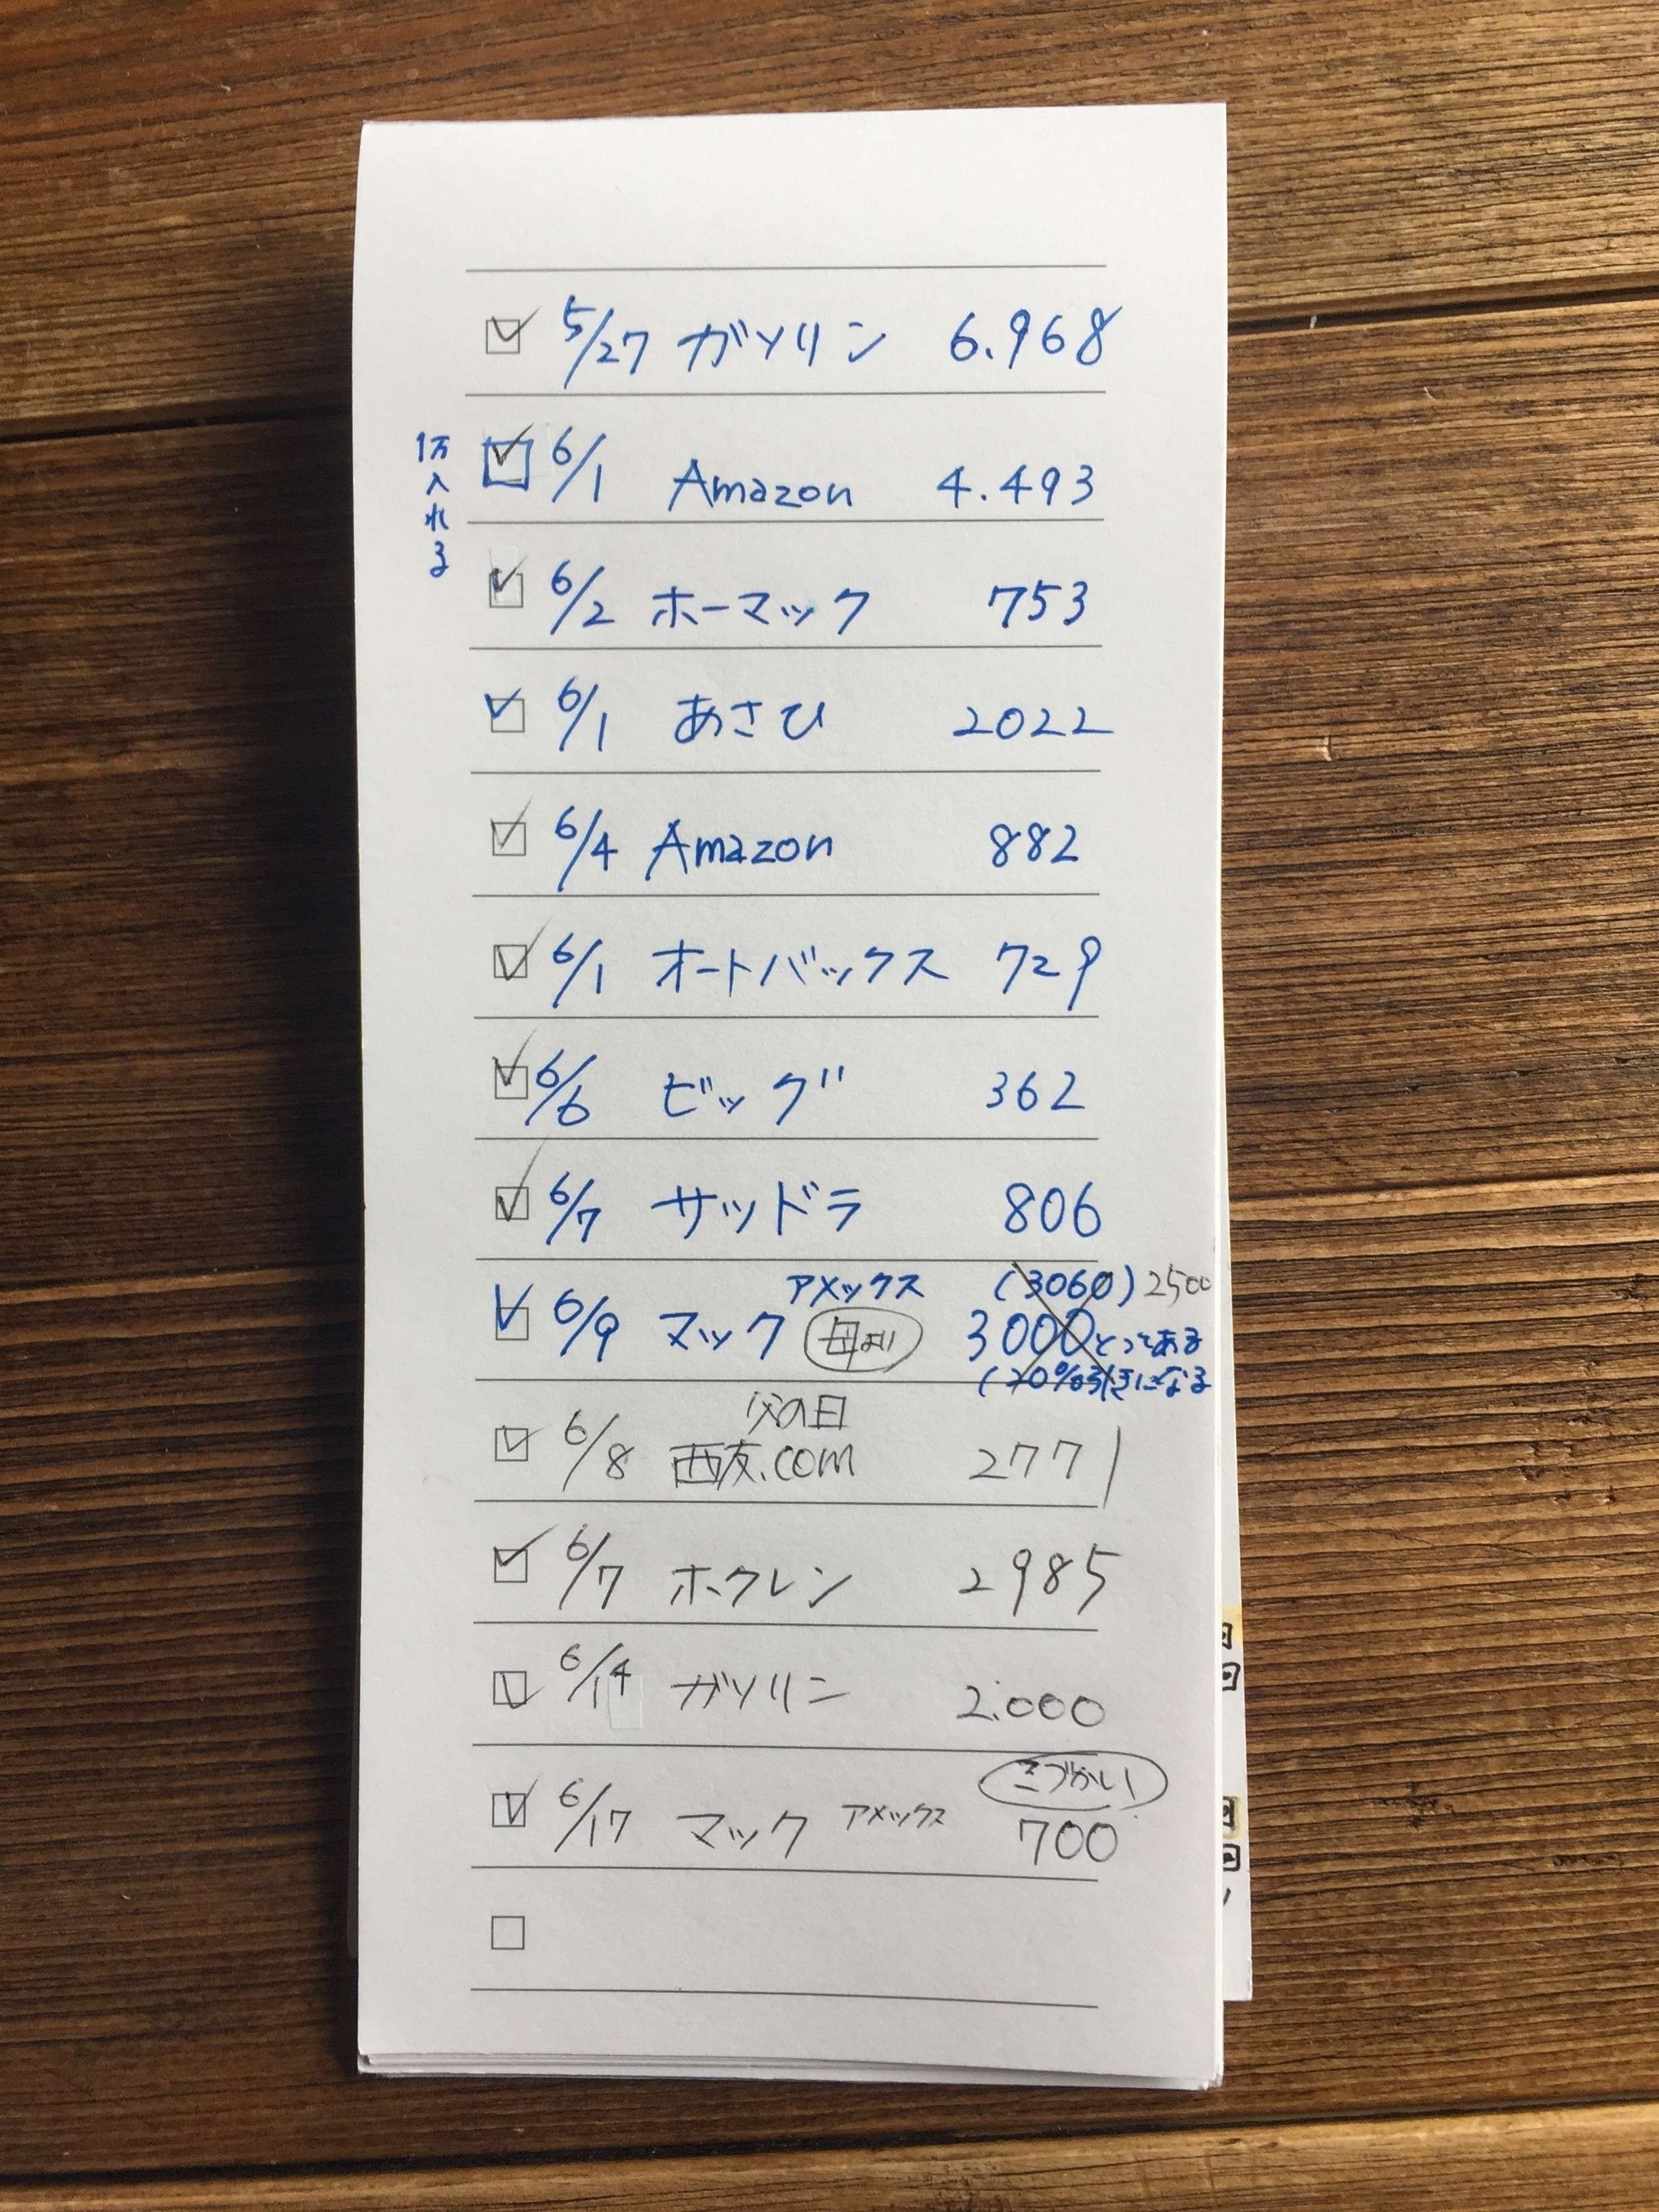 5/27 ガソリン 6.968
1万入れる
6/1 Amazon 4.493
6/2 ホーマック 753
6/1 あさひ 2022
6/4 Amazon 882
6/1 オートバックス 729
6/6 ビッグ 362
6/7 サッドラ 806
アメックス (3060) 2500
6/9 マック 母より 3000とってある
(20%引きになる
父の日
6/8 西友.com 2771
6/7 ホクレン 2985
6/14 ガソリン 2.000
こづかい
6/17 マック アメックス 700